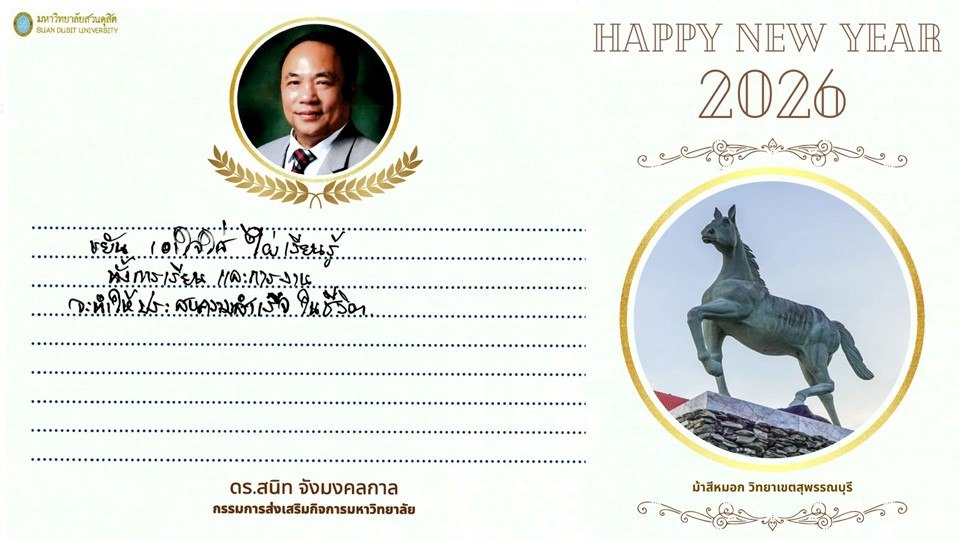 มหาวิทยาลัยสวนดุสิต
SUAN DUSIT UNIVERSITY
ขยัน เอาใจใส่ ใฝ่เรียนรู้
ทั้งการเรียน และการงาน
จะทำให้ประสบความสำเร็จ ในชีวิต
ดร.สนิท จังมงคลกาล
กรรมการส่งเสริมกิจการมหาวิทยาลัย
HAPPY NEW YEAR
2026
ม้าสีหมอก วิทยาเขตสุพรรณบุรี